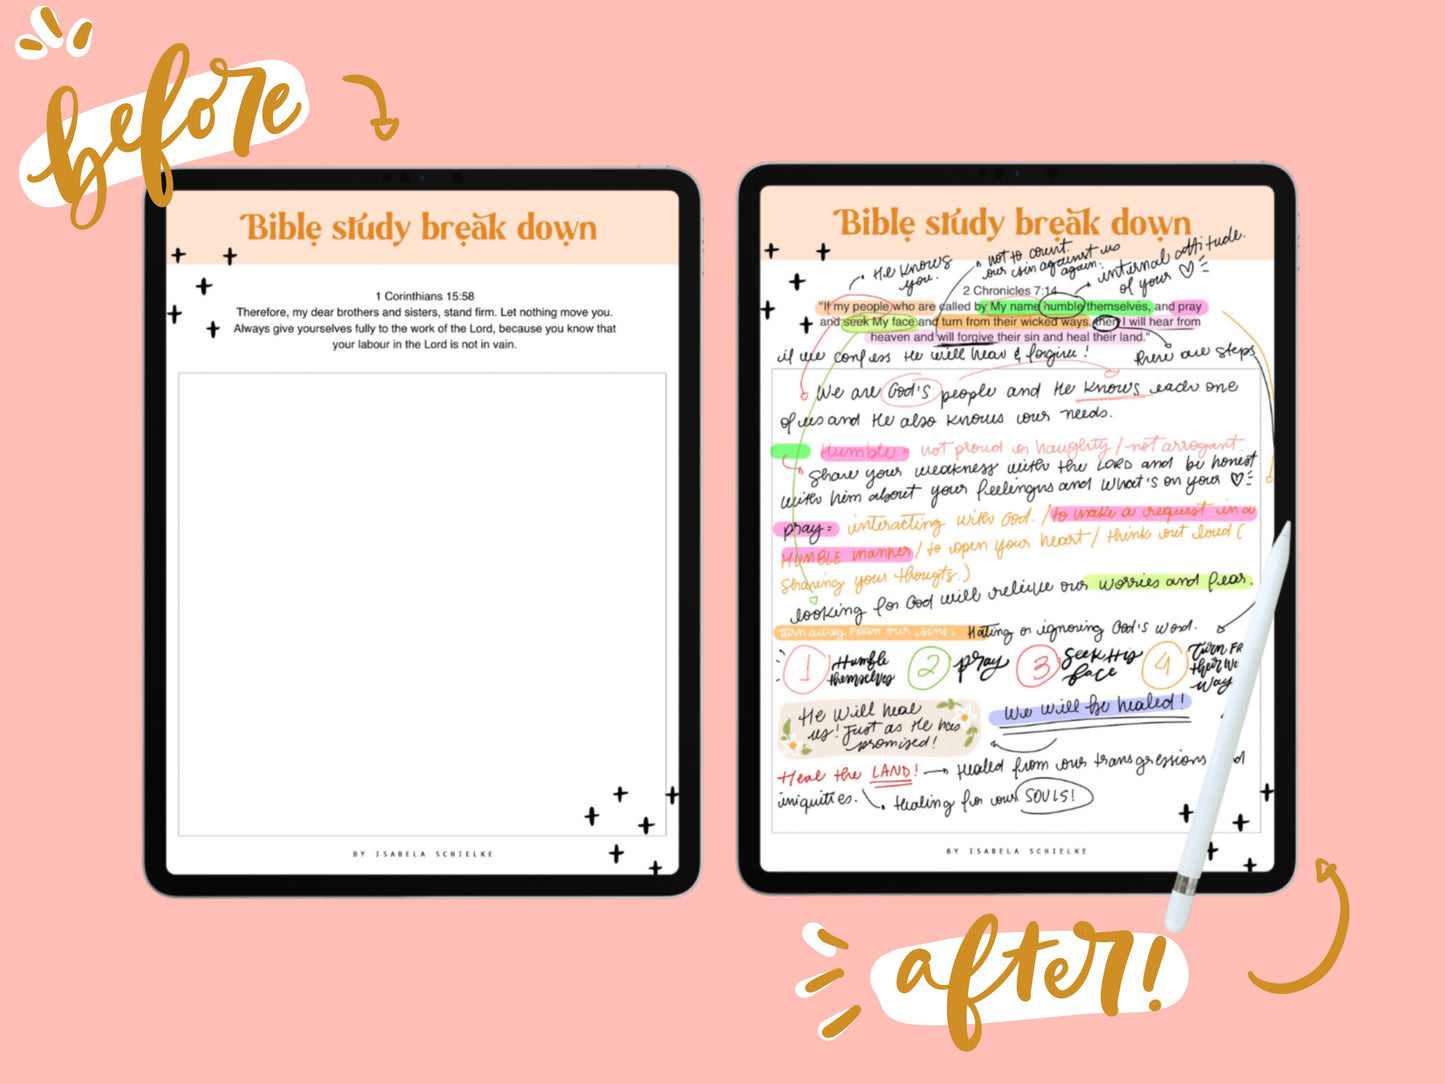 before
Bible study break down
1 Corinthians 15:58
Therefore, my dear brothers and sisters, stand firm. Let nothing move you.
Always give yourselves fully to the work of the Lord, because you know that
your labour in the Lord is not in vain.
BY ISABELA SCHIELKE
Bible study break down
He knows
you.
not to count
our sin against us
again.
internal attitude.
of your ♡
2 Chronicles 7:14
"If my people who are called by My name humble themselves, and pray
and seek My face and turn from their wicked ways, then I will hear from
heaven and will forgive their sin and heal their land."
if we confess He will hear & forgive!
there are steps
We are God's people and He knows each one
of us and He also knows our needs.
Humble = not proud or haughty / not arrogant.
Share your weakness with the LORD and be honest
with him about your feelingns and what's on your ♡
pray = interacting with God. / to make a request in a
HUMBLE manner / to open your heart / think out loud (
sharing your thougts.)
looking for God will relieve our worries and fear.
turn away from our sins = Hating or ignoring God's word.
1 Humble
themselves
2 pray
3 Seek His
face
4 Turn FR
their W
way
He will heal
us! Just as He has
promised!
We will be healed!
Heal the LAND! → Healed from our transgressions
iniquities. Healing for our SOULS!
BY ISABELA SCHIELKE
after!